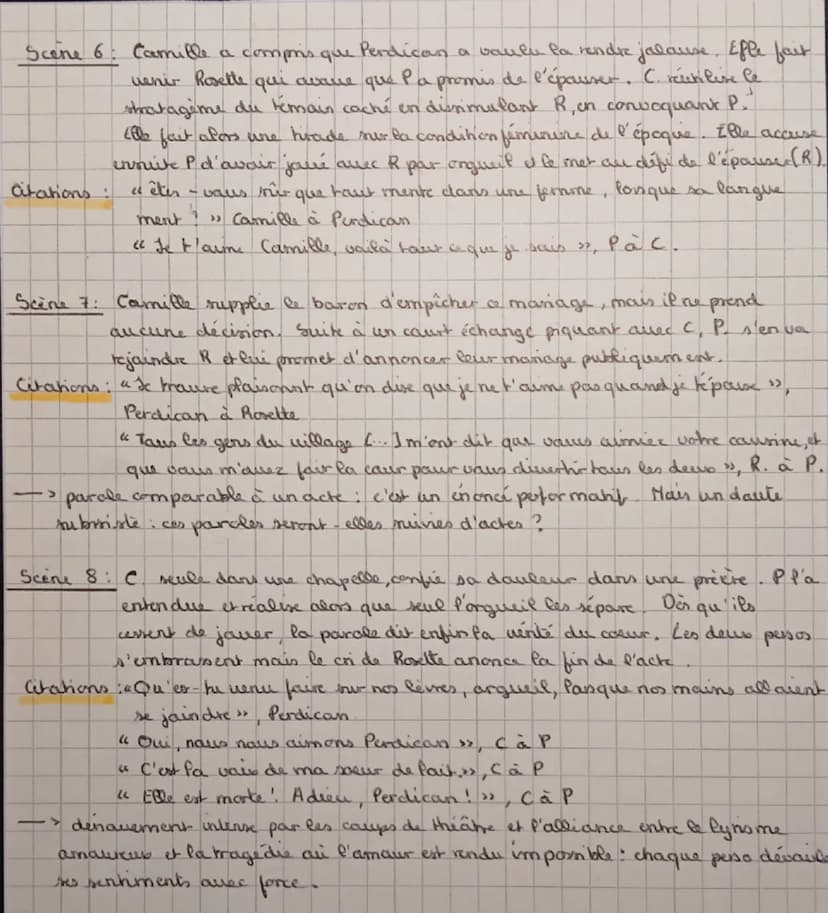 Scène 6 : Camille a compris que Perdican a voulu la rendre jalouse. Elle fait
venir Rosette qui avoue que P a promis de l'épouser. C. réutilise le
stratagème du témoin caché en dissimulant R, en convoquant P.
Elle fait alors une tirade sur la condition féminine de l'époque. Elle accuse
ensuite P d'avoir joué avec R par orgueil et le met au défi de l'épouser (R).
Citations : " êtes-vous sûr que tout mente dans une femme, lorsque sa langue
ment ? " Camille à Perdican
" Je t'aime Camille, voilà tout ce que je sais ", P à C.
Scène 7 : Camille supplie le baron d'empêcher ce mariage, mais il ne prend
aucune décision. Suite à un court échange piquant avec C, P. s'en va
rejoindre R et lui promet d'annoncer leur mariage publiquement.
Citations : " Je trouve plaisant qu'on dise que je ne t'aime pas quand je t'épouse ",
Perdican à Rosette
" Tous les gens du village [...] m'ont dit que vous aimiez votre cousine, et
que vous m'avez fait la cour pour vous divertir tous les deux ", R. à P.
—> parole comparable à un acte : c'est un énoncé performatif. Mais un doute
subsiste : ces paroles seront-elles suivies d'actes ?
Scène 8 : C. seule dans une chapelle, confie sa douleur dans une prière. P l'a
entendue et réalise alors que seul l'orgueil les sépare. Dès qu'ils
cessent de jouer, la parole dit enfin la vérité du coeur. Les deux persos
s'embrassent mais le cri de Rosette anonce la fin de l'acte.
Citations : " Qu'es-tu venu faire sur nos lèvres, orgueil, lorsque nos mains allaient
se joindre ", Perdican
" Oui, nous nous aimons Perdican ", C à P
" C'est la voix de ma soeur de lait. ", C à P
" Elle est morte ! Adieu, Perdican ! ", C à P
—> dénouement intense par les coups de théâtre et l'alliance entre le lyrisme
amoureux et la tragédie où l'amour est rendu impossible : chaque perso dévoile
ses sentiments avec force.